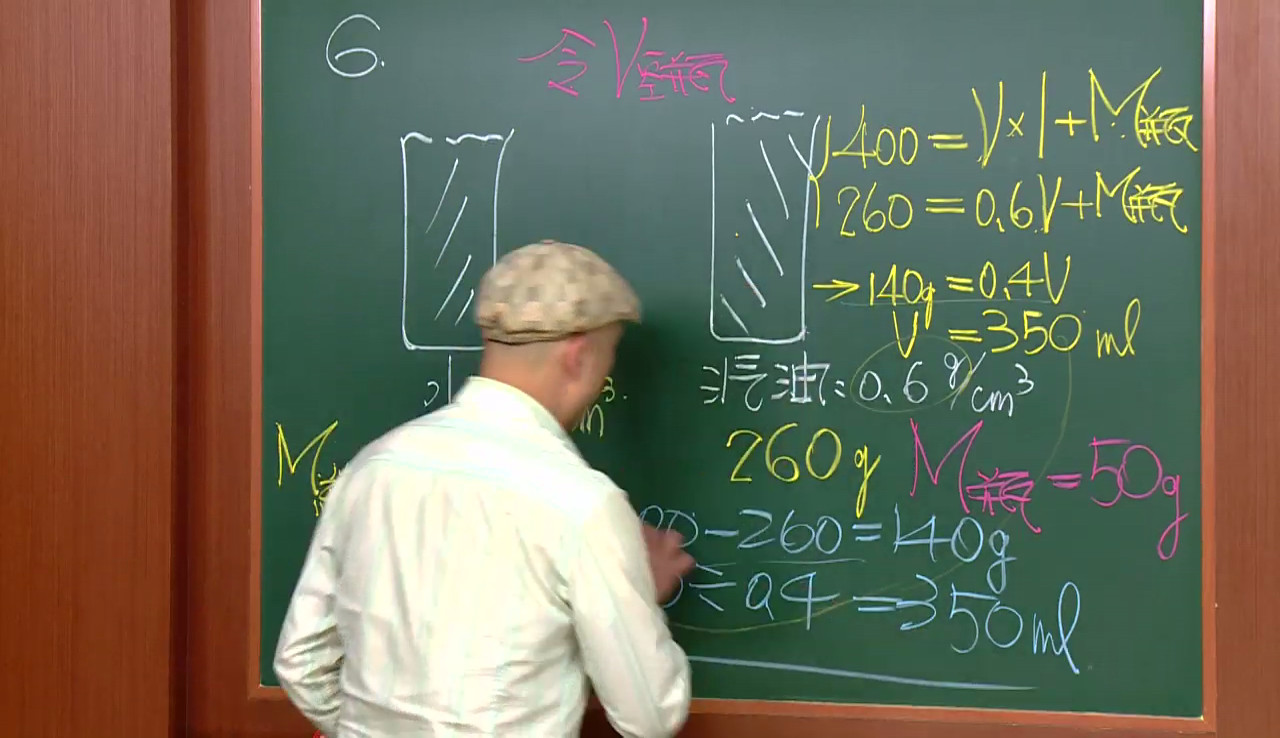 6.
令V空瓶
400=V×1+M瓶
260=0.6V+M瓶
→140g=0.4V
V=350ml
汽油:0.6g/cm³
260g
M瓶=50g
00-260=140g
0.4=350ml